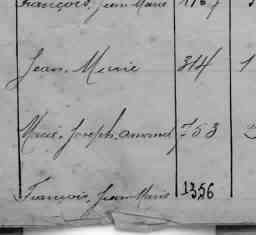 François, Jean Marie
Jean Marie 314 1
Marie, Joseph, Armand 753
François, Jean Marie 1356